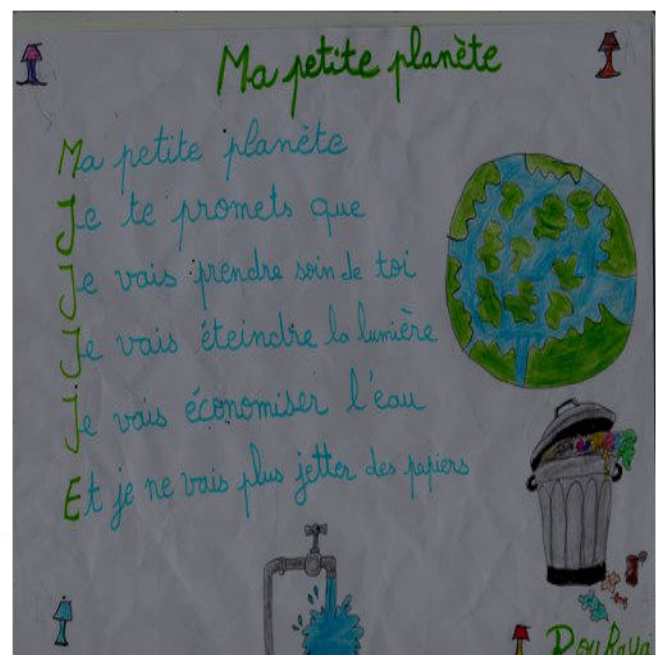 Ma petite planète
Ma petite planète
Je te promets que
Je vais prendre soin de toi
Je vais éteindre la lumière
Je vais économiser l'eau
Et je ne vais plus jetter des papiers